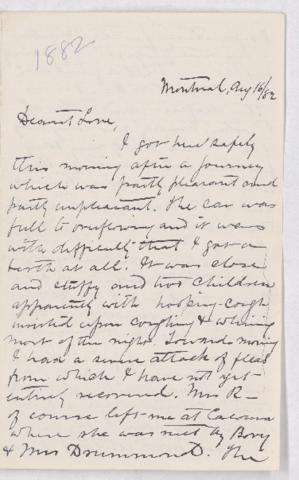 1882
Montreal, Aug 16/82
Dearest Love,
I got here safely
this morning after a journey
which was partly pleasant and
partly unpleasant. The car was
full to overflowing and it was
with difficulty that I got a
berth at all. It was close
and stuffy and two children
apparently with hooping-cough
insisted upon coughing & whining
most of the night. Towards morning
I had a severe attack of fleas
from which I have not yet
entirely recovered. Mrs R—
of course left me at Cacouna
where she was met by
& Miss Drummond. The